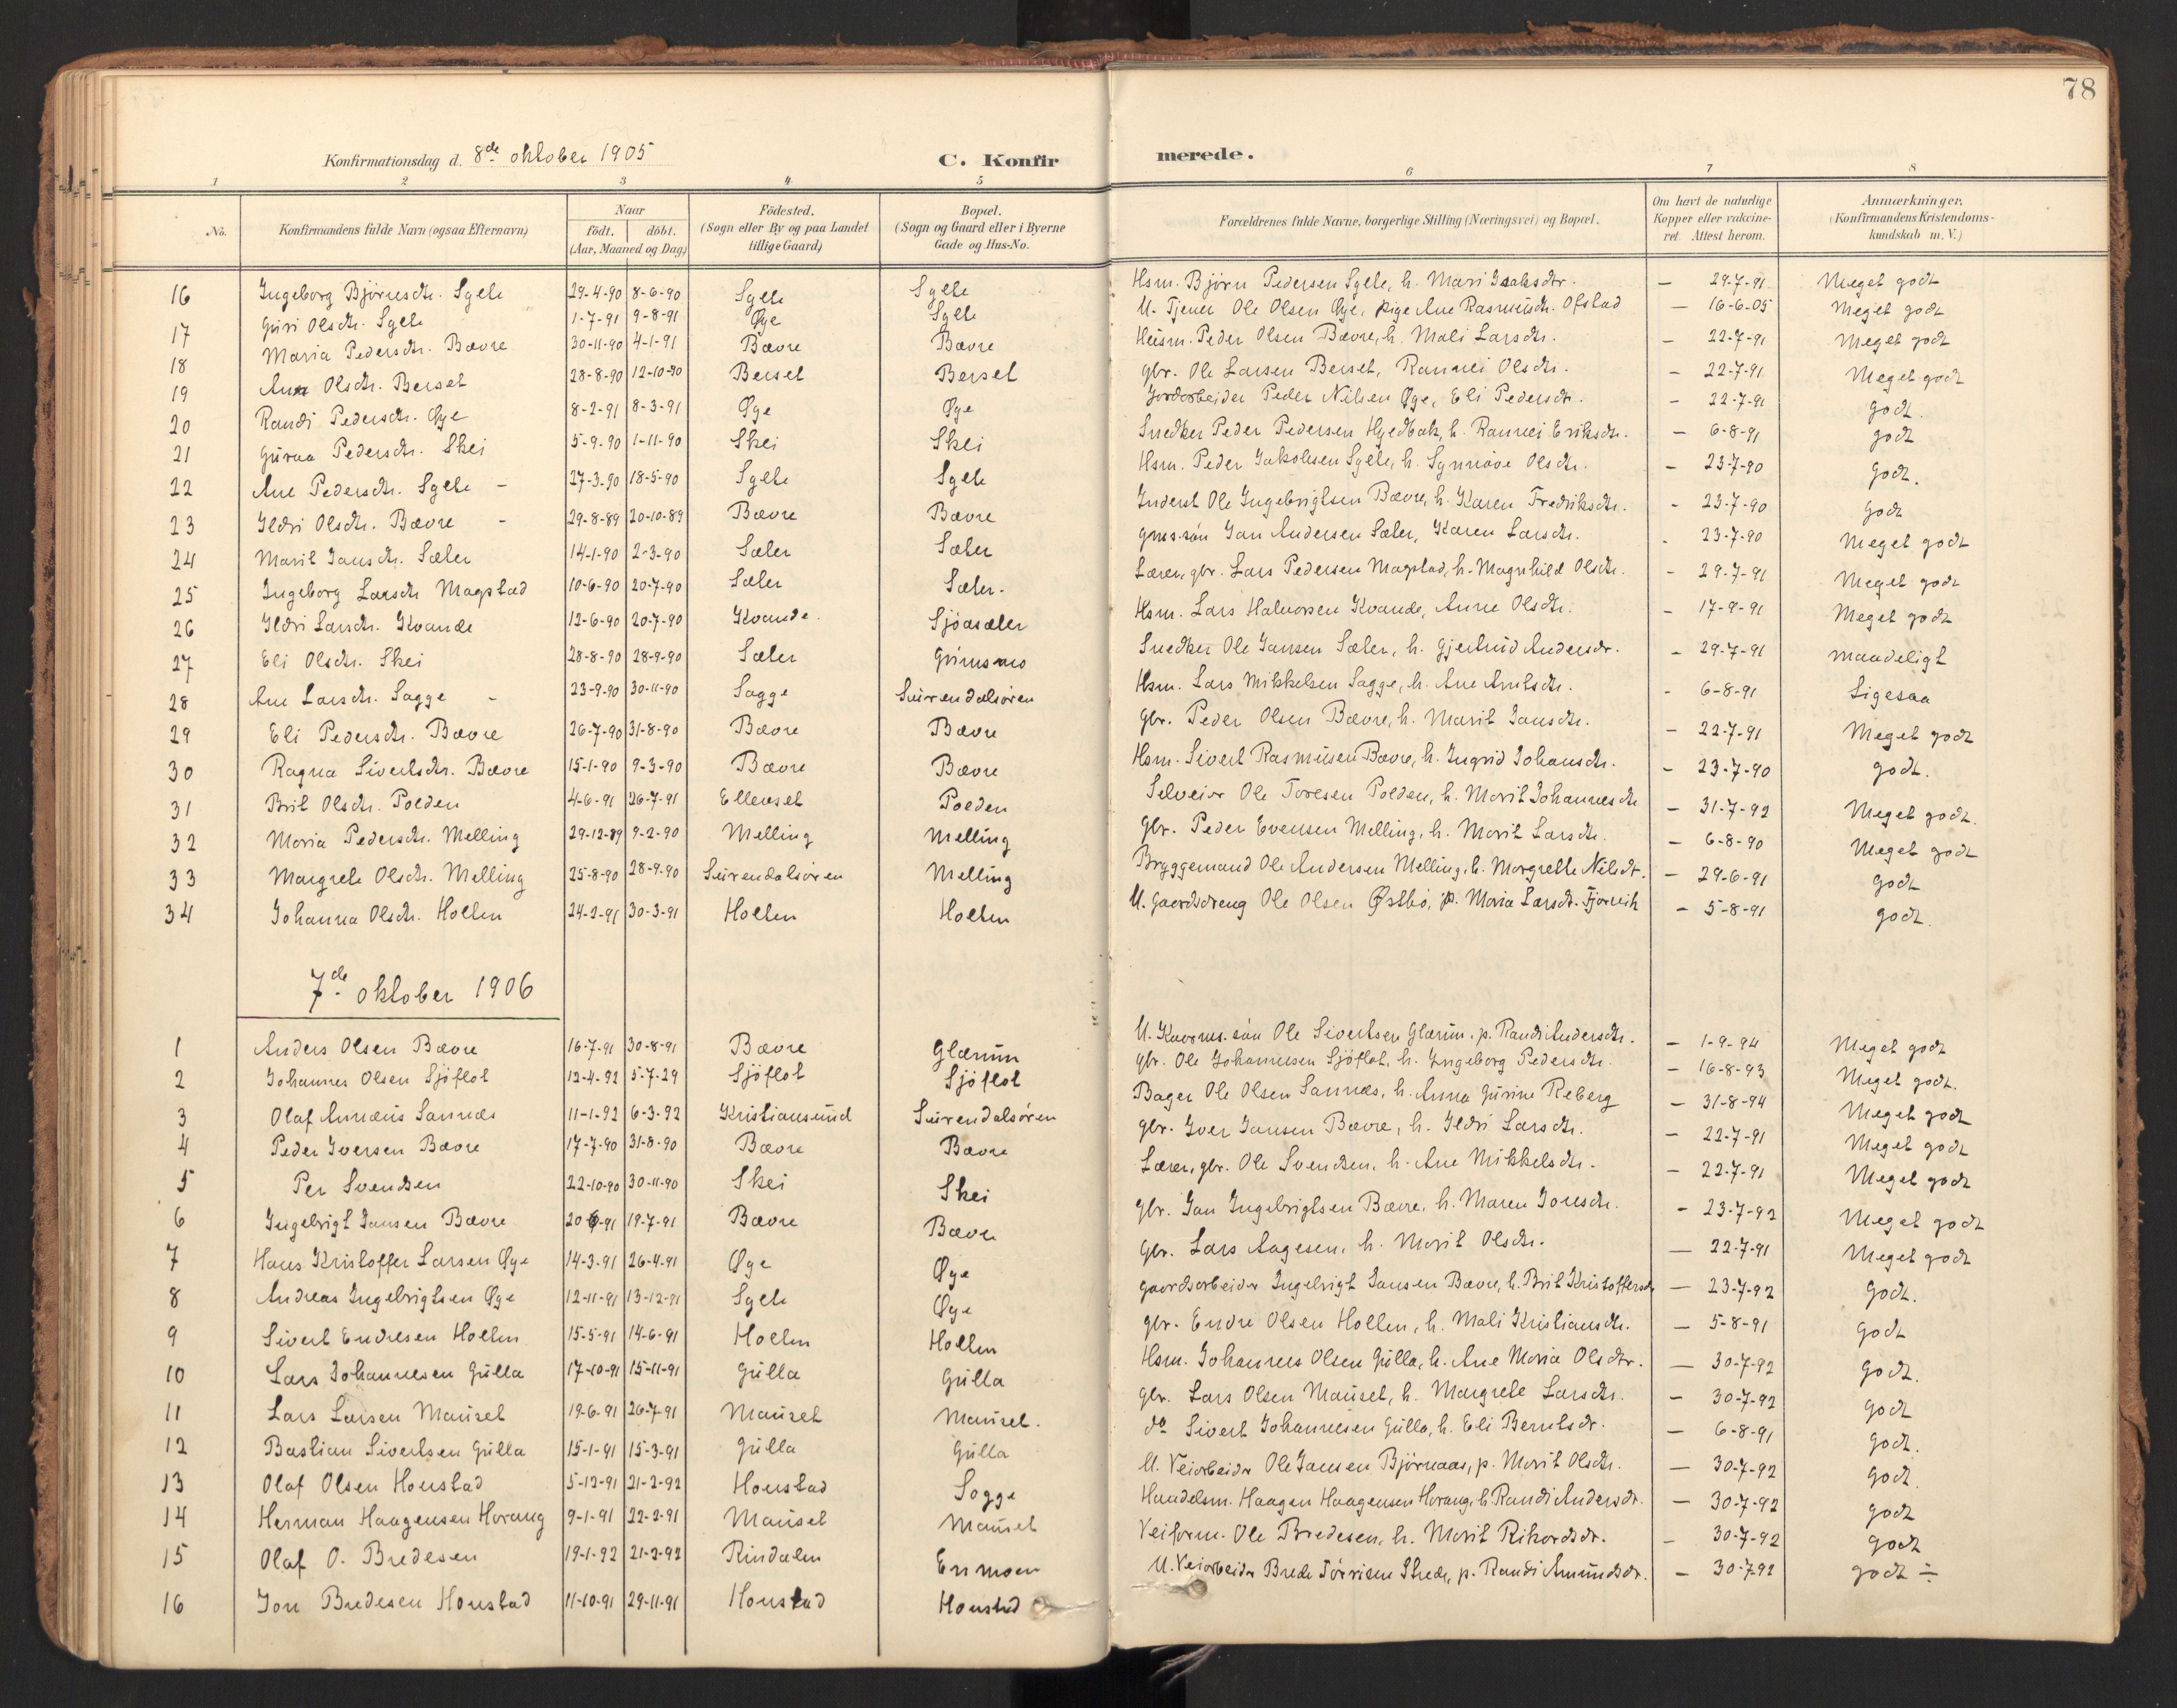 78
Konfirmationsdag d. 8de oktober 1905 C. Konfirmerede.
1 2 3 4 5 6 7 8
No. Konfirmandens fulde Navn (ogsaa Efternavn) Naar født. døbt. (Aar, Maaned og Dag) Födested. (Sogn eller By og paa Landet tillige Gaard) Bopæl. (Sogn og Gaard eller i Byerne Gade og Hus-No. Forældrenes fulde Navne, borgerlige Stilling (Næringsvei) og Bopæl. Om havt de naturlige Kopper eller vakcineret. Attest herom. Anmærkninger. (Konfirmandens Kristendomskundskab m. V.)
16 Ingeborg Björnsdtr. Sylte 29-4-90 8-6-90 Sylte Sylte Hsm. Björn Pedersen Sylte, h. Mari Isaksdtr. – 29-7-91 Meget godt
17 Guri Olsdtr. Sylte 1-7-91 9-8-91 Øye Sylte U. Tjener Ole Olsen Øye, pige Ane Rasmusdtr. Ofstad – 16-6-05 Meget godt
18 Maria Pedersdtr. Bævre 30-11-90 4-1-91 Bævre Bævre Husm. Peder Olsen Bævre, h. Mali Larsdtr. – 22-7-91 Meget godt
19 Ane Olsdtr. Berset 28-8-90 12-10-90 Berset Berset gbr. Ole Larsen Berset, Rannei Olsdtr. – 22-7-91 Meget godt
20 Randi Pedersdtr. Øye 8-2-91 8-3-91 Øye Øye Jordarbeider Peder Nilsen Øye, Eli Pedersdtr. – 22-7-91 godt.
21 Guraa Pedersdtr. Skei 5-9-90 1-11-90 Skei Skei Snedker Peder Pedersen Hyedbak, h. Rannei Eriksdtr. – 6-8-91 godt
22 Ane Pedersdtr. Sylte – 27-3-90 18-5-90 Sylte Sylte Hsm. Peder Jakobsen Sylte, h. Synnöve Olsdtr. – 23-7-90 godt.
23 Ildri Olsdtr. Bævre – 29-8-89 20-10-89 Bævre Bævre Inderst Ole Ingebrigtsen Bævre, h. Karen Fredriksdtr. – 23-7-90 godt
24 Marit Jansdtr. Sæter 14-1-90 2-3-90 Sæter Sæter gms.sön Jan Andersen Sæter, Karen Larsdtr. – 23-7-90 Meget godt
25 Ingeborg Larsdtr Magstad 10-6-90 20-7-90 Sæter Sæter. Lærer, gbr. Lars Pedersen Magstad, h. Magnhild Olsdtr. – 29-7-91 Meget godt
26 Ildri Larsdtr. Kvande 12-6-90 20-7-90 Kvande. Sjöasæter Hsm. Lars Halvorsen Kvande, Anne Olsdtr. – 17-9-91 Meget godt
27 Eli Olsdtr. Skei 28-8-90 28-9-90 Sæter Grimsmo Snedker Ole Jansen Sæter, h. Gjertrud Andersdr. – 29-7-91 maadeligt
28 Ane Larsdtr. Sagge – 23-9-90 30-11-90 Sagge Surendalsören Hsm. Lars Mikkelsen Sagge, h. Ane Arntsdtr. – 6-8-91 Ligesaa
29 Eli Pedersdtr. Bævre 26-7-90 31-8-90 Bævre Bævre gbr. Peder Olsen Bævre, h. Marit Jansdtr. – 22-7-91 Meget godt
30 Ragna Sivertsdtr. Bævre 15-1-90 9-3-90 Bævre Bævre Hsm. Sivert Rasmusen Bævre, h. Ingrid Johansdtr. – 23-7-90 godt.
31 Brit Olsdtr. Polden 4-6-91 26-7-91 Ellenset Polden Selveier Ole Toresen Polden, h. Marit Johannesdtr – 31-7-92 Meget godt.
32 Maria Pedersdtr. Melling 29-12-89 9-2-90 Melling Melling gbr. Peder Evensen Melling, h. Marit Larsdtr. – 6-8-90 Meget godt
33 Margrete Olsdtr. Melling 25-8-90 28-9-90 Surendalsören Melling Bryggemand Ole Andersen Melling, h. Margrethe Nilsdtr. – 29-6-91 godt
34 Johanna Olsdtr. Holten 24-2-91 30-3-91 Holten Holten U. Gaardsdreng Ole Olsen Østbö, p. Maria Larsdtr. Fjørvik – 5-8-91 godt.
7de oktober 1906
1 Anders Olsen Bævre 16-7-91 30-8-91 Bævre Glærum U. Kaarms. sön Ole Sivertsen Glærum, p. Randi Andersdtr. – 1-9-94 Meget godt
2 Johannes Olsen Sjöflot 12-4-92 5-7-29 Sjöflot Sjöflot gbr. Ole Johannesen Sjöflot, h. Ingeborg Pedersdtr. – 16-8-93 Meget godt.
3 Olaf Annæus Sannæs 11-1-92 6-3-92 Kristiansund Surendalsören Bager Ole Olsen Sannæs, h. Anna Gurine Reberg – 31-8-94 Meget godt
4 Peder Iversen Bævre 17-7-90 31-8-90 Bævre Bævre gbr. Iver Jansen Bævre, h. Ildri Larsdtr. – 22-7-91 Meget godt
5 Per Svendsen 22-10-90 30-11-90 Skei Skei Lærer, gbr. Ole Svendsen, h. Ane Mikkelsdtr. – 22-7-91 Meget godt
6 Ingebrigt Jansen Bævre 20-6-91 19-7-91 Bævre Bævre gbr. Jan Ingebrigtsen Bævre, h. Maren Jonsdtr. – 23-7-92 Meget godt
7 Hans Kristoffer Larsen Øye 14-3-91 26-4-91 Øye Øye gbr. Lars Aagesen, h. Marit Olsdtr. – 22-7-91 Meget godt
8 Andreas Ingebrigtsen Øye 12-11-91 13-12-91 Sylte Øye Gaardsarbeider Ingebrigt Jansen Bævre, h. Brit Kristoffersdtr – 23-7-92 godt.
9 Sivert Endresen Holten 15-5-91 14-6-91 Holten Holten gbr. Endre Olsen Holten, h. Mali Kristiansdtr. – 5-8-91 godt
10 Lars Johannesen Gulla 17-10-91 15-11-91 Gulla Gulla Hsm. Johannes Olsen Gulla, h. Ane Maria Olsdtr. – 30-7-92 godt.
11 Lars Larsen Mauset 19-6-91 26-7-91 Mauset Mauset. gbr. Lars Olsen Mauset, h. Margrete Larsdtr. – 30-7-92 godt
12 Bastian Sivertsen Gulla 15-1-91 15-3-91 Gulla Gulla do Sivert Johannesen Gulla, h. Eli Berntsdr. – 6-8-91 godt.
13 Olaf Olsen Honstad 5-12-91 21-2-92 Honstad Sogge U. Veiarbeidr Ole Jansen Björnaas, p. Marit Olsdtr. – 30-7-92 godt
14 Herman Haagensen Harang 9-1-91 22-2-91 Mauset Mauset Handelsm. Haagen Haagensen Harang, h. Randi Andersdr. – 30-7-92 godt
15 Olaf O. Bredesen 19-1-92 21-2-92 Rindalen Enmoen Veiform. Ole Bredesen, h. Marit Rikardsdr. – 30-7-92 godt
16 Jon Bredesen Honstad 11-10-91 29-11-91 Honstad Honstad U. Veiarbeidr Brede Törrisen Strede, p. Randi Amundsdr. – 30-7-92 godt ÷